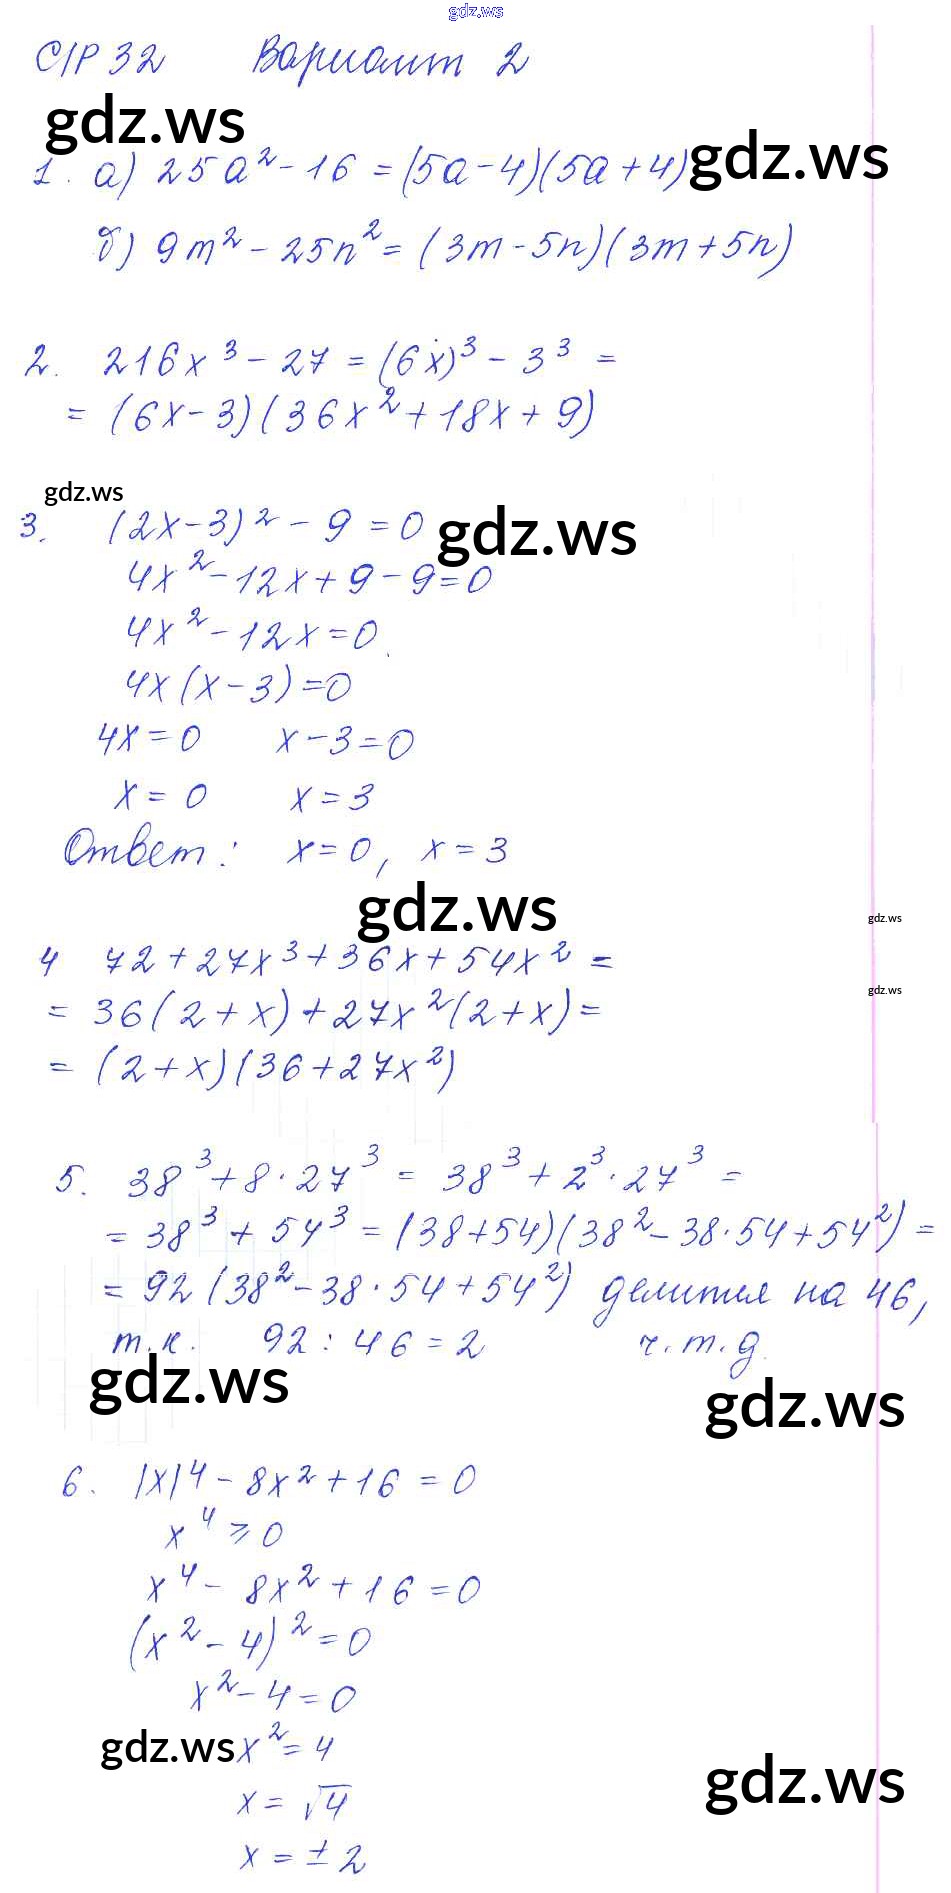 gdz.ws
С/Р 32 Вариант 2
gdz.ws
1. а) 25a² - 16 = (5a - 4)(5a + 4) gdz.ws
б) 9m² - 25n² = (3m - 5n)(3m + 5n)
2. 216x³ - 27 = (6x)³ - 3³ =
= (6x - 3)(36x² + 18x + 9)
gdz.ws
3. (2x - 3)² - 9 = 0 gdz.ws
4x² - 12x + 9 - 9 = 0
4x² - 12x = 0
4x(x - 3) = 0
4x = 0 x - 3 = 0
x = 0 x = 3
Ответ: x = 0, x = 3
gdz.ws gdz.ws
4 72 + 27x³ + 36x + 54x² =
gdz.ws
= 36(2 + x) + 27x²(2 + x) =
= (2 + x)(36 + 27x²)
5. 38³ + 8 · 27³ = 38³ + 2³ · 27³ =
= 38³ + 54³ = (38 + 54)(38² - 38 · 54 + 54²) =
= 92(38² - 38 · 54 + 54²) делится на 46,
т.к. 92 : 46 = 2 ч.т.д.
gdz.ws gdz.ws
6. |x|⁴ - 8x² + 16 = 0
x⁴ ⩾ 0
x⁴ - 8x² + 16 = 0
(x² - 4)² = 0
x² - 4 = 0
gdz.ws x² = 4
gdz.ws
x = √4
x = ± 2